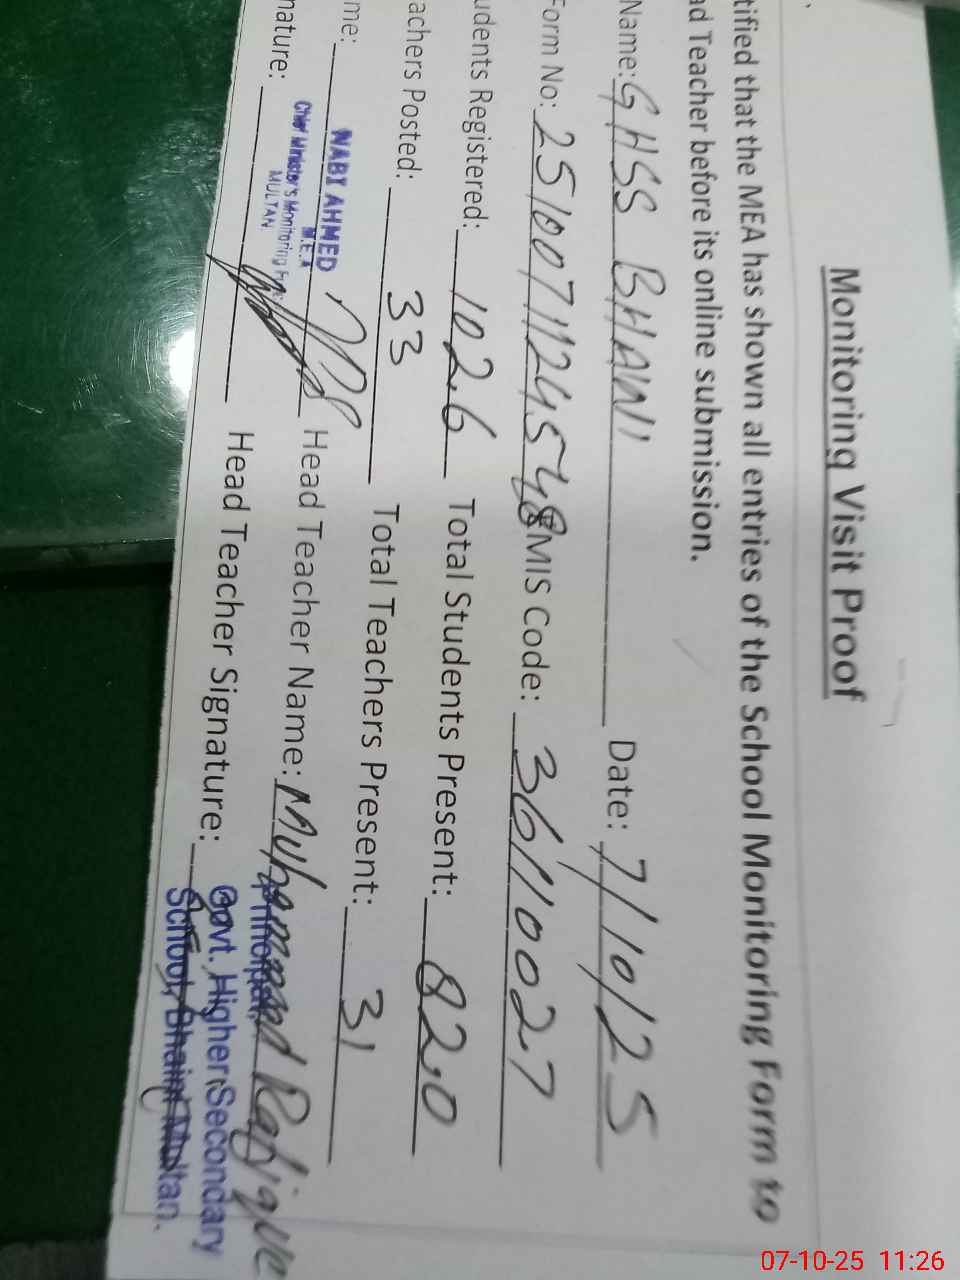 Monitoring Visit Proof
tified that the MEA has shown all entries of the School Monitoring Form to
ad Teacher before its online submission.
Name: GHSS BHAINI Date: 7/10/25
Form No: 2510071124548 EMIS Code: 36110027
udents Registered: 1026 Total Students Present: 820
achers Posted: 33 Total Teachers Present: 31
me: NABI AHMED Head Teacher Name: Muhammad Rafique
M.E.A
Chief Minister's Monitoring
MULTAN
nature: Head Teacher Signature:
Principal,
Govt. Higher Secondary
School, Bhaini Multan.
07-10-25 11:26